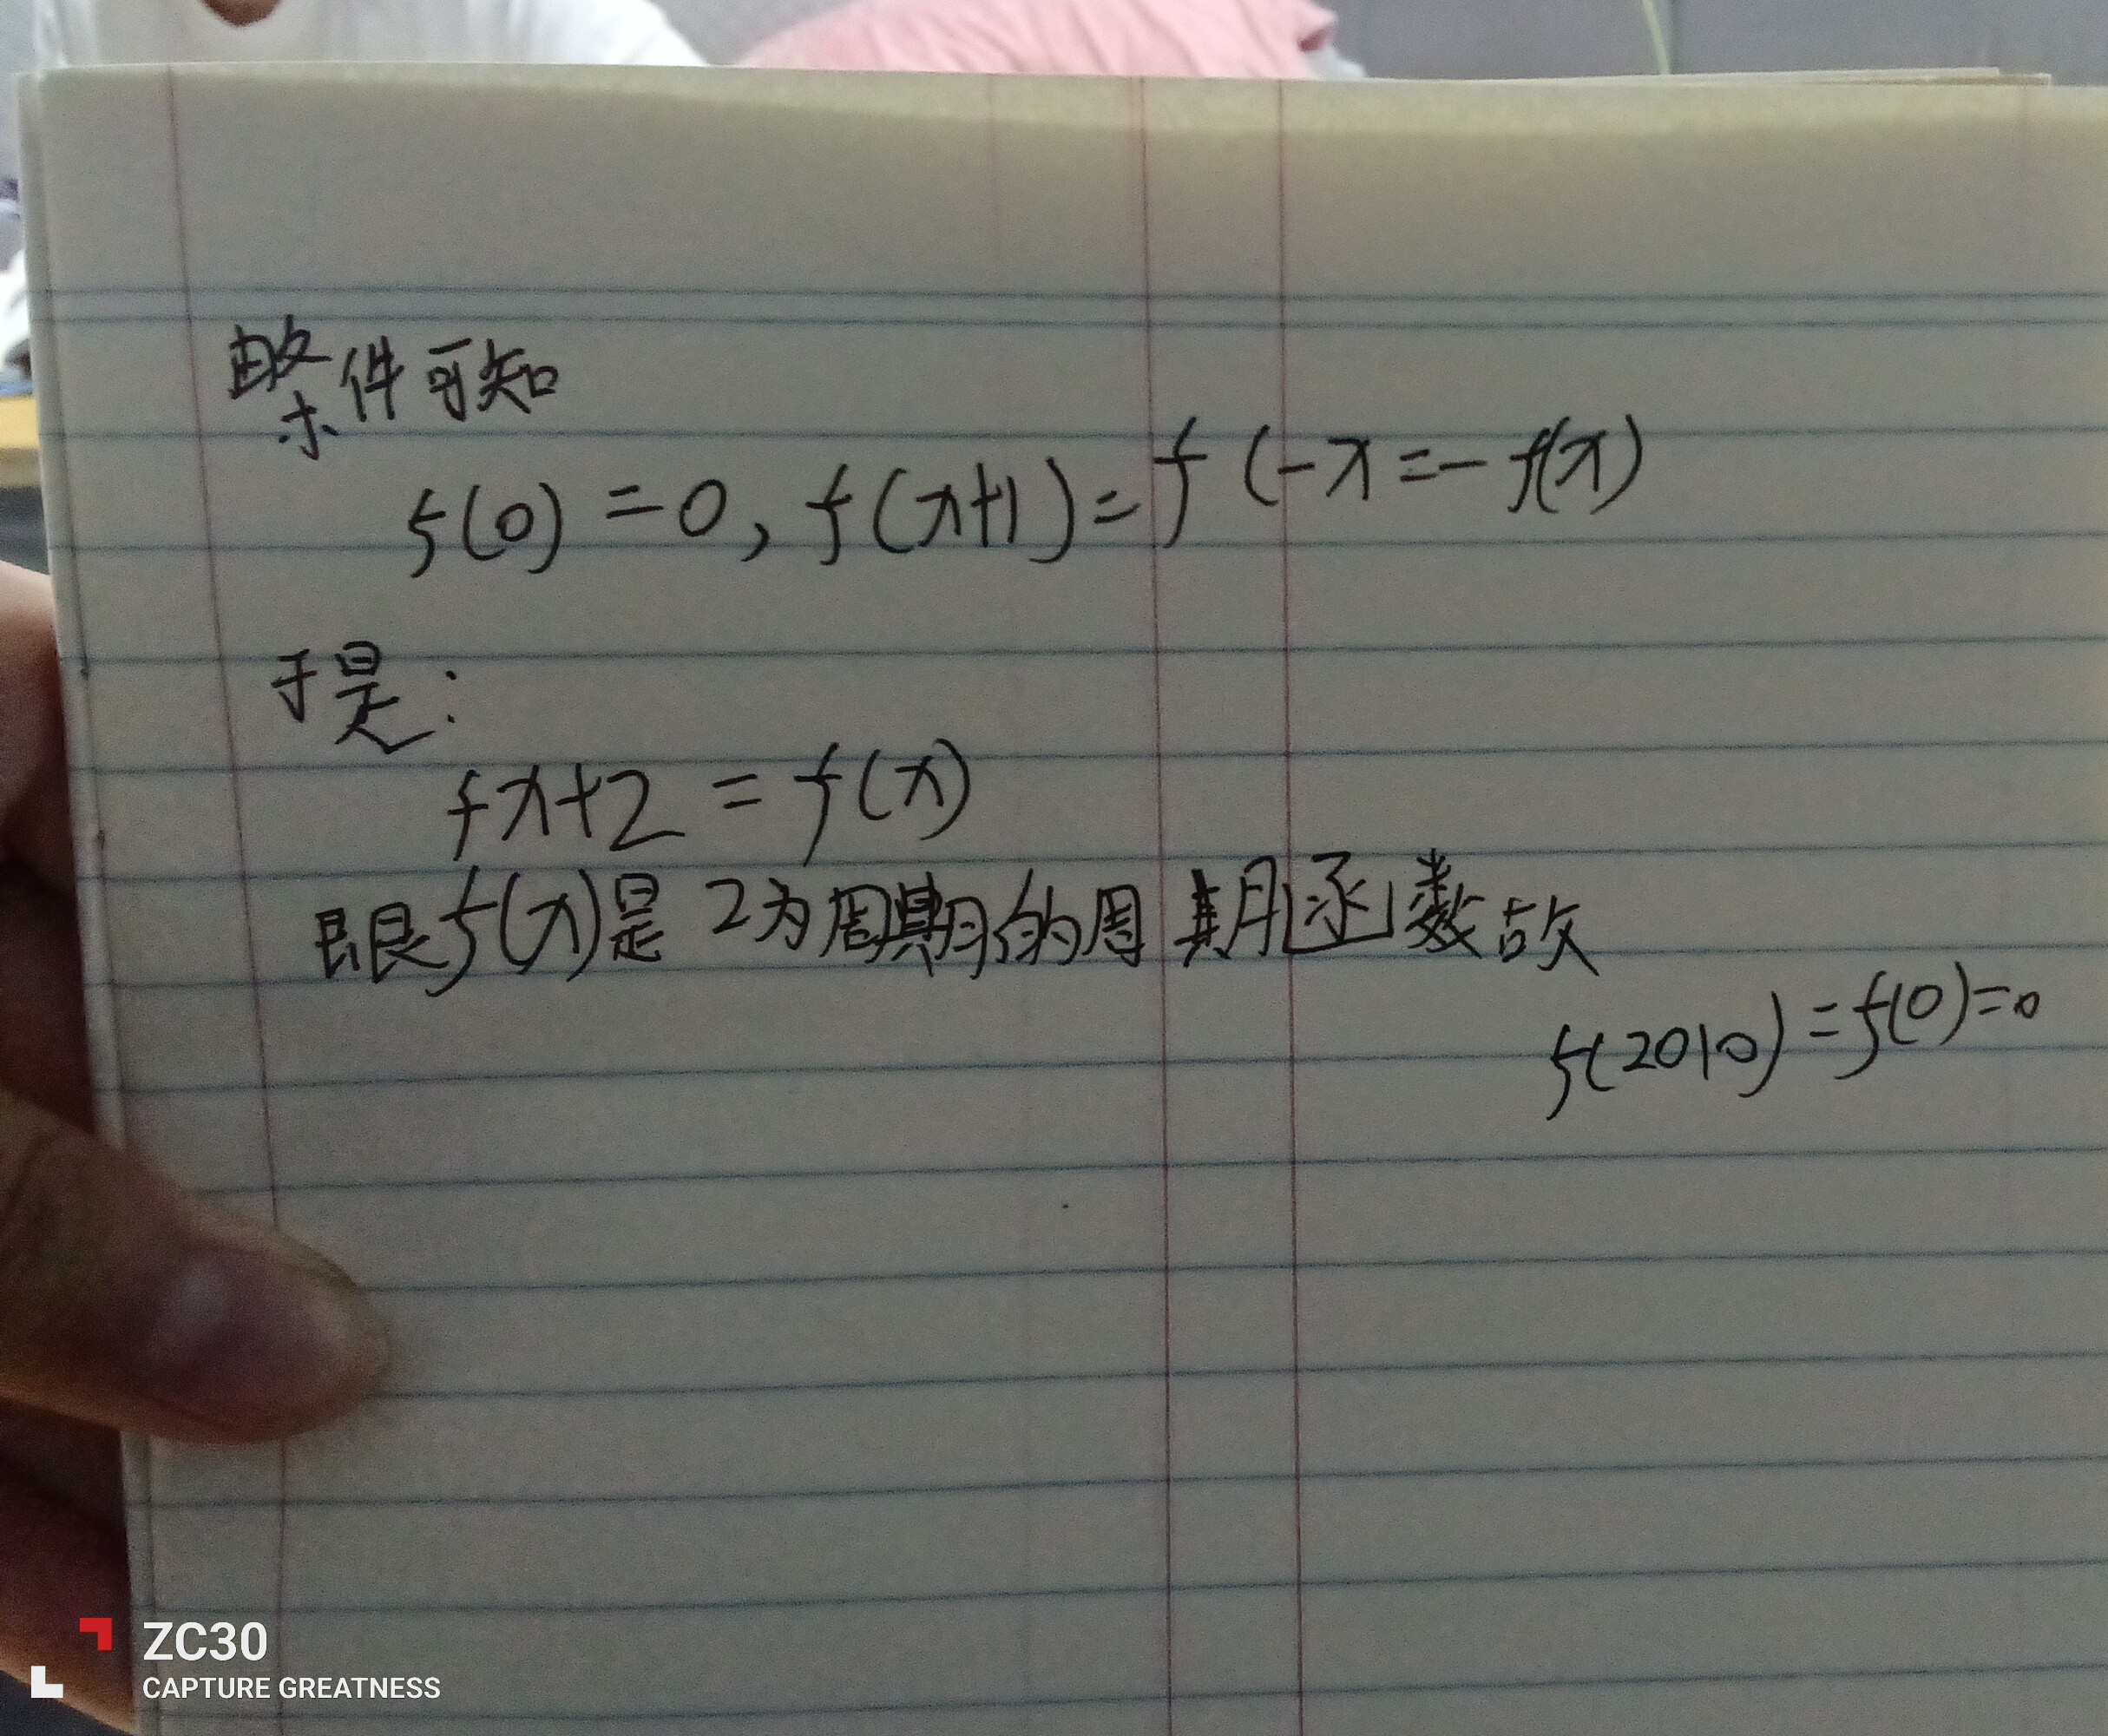 由条件可知
f(0)=0,f(x+1)=f(-x=-f(x)
于是:
fx+2=f(x)
f(x)是2为周期的周期函数故
f(2010)=f(0)=0
ZC30
CAPTURE GREATNESS